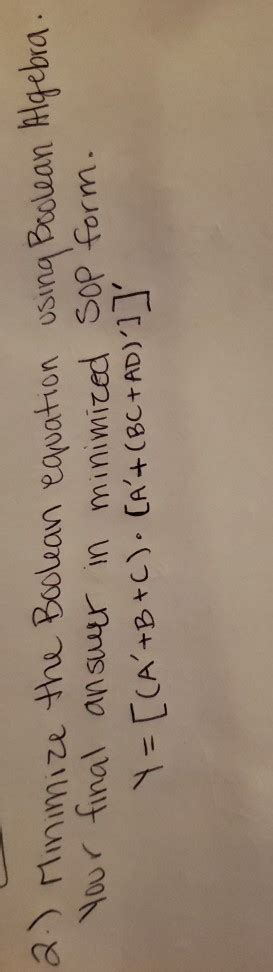 2.) Minimize the Boolean equation using Boolean Algebra.
Your final answer in minimized SOP form.
Y = [(A'+B+C)·[A'+(BC+AD)']]'